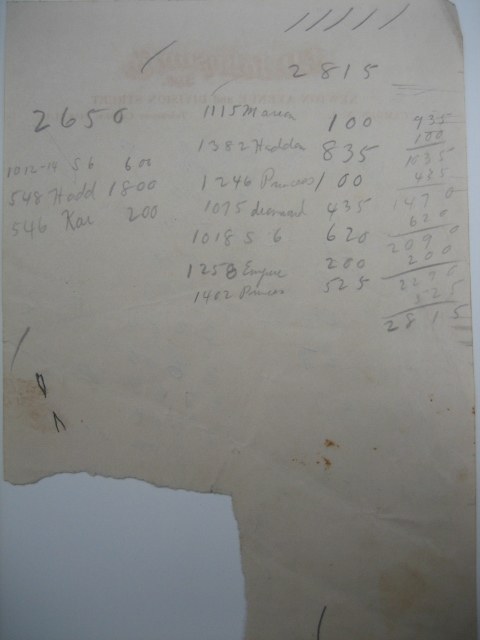 2815
2650
1012-14 S 6 600
548 Hadd 1800
546 Kai 200
1115 Marion 100
1382 Haddon 835
1246 Princess 100
1075 diamond 435
1018 S 6 620
1258 Empire 200
1402 Princes 525
935
100
1035
435
1470
620
2090
200
2290
525
2815